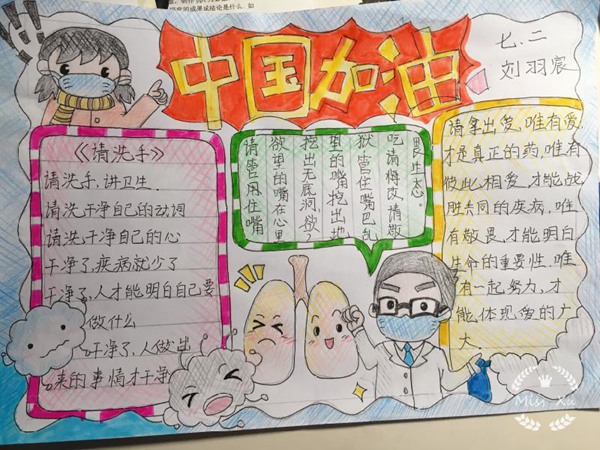 的成果或结论是什么，如
中国加油
七.二
刘羽宸
《请洗手》
请洗手，讲卫生
请洗干净自己的动词
请洗干净自己的心
干净了，疾病就少了
干净了，人才能明白自己要
做什么
干净了，人做出
来的事情才干净
请管用住嘴
欲望的嘴在心里
挖出无底洞，欲
的嘴挖出地
狱，管住嘴巴乱
吃 悔改，请敬
畏生态。
请拿出爱，唯有爱，
才是真正的药，唯有
彼此相爱，才能战
胜共同的疾病，唯
有敬畏，才能明白
生命的重要性，唯
有一起努力，才
能体现爱的广
大
Miss Xu